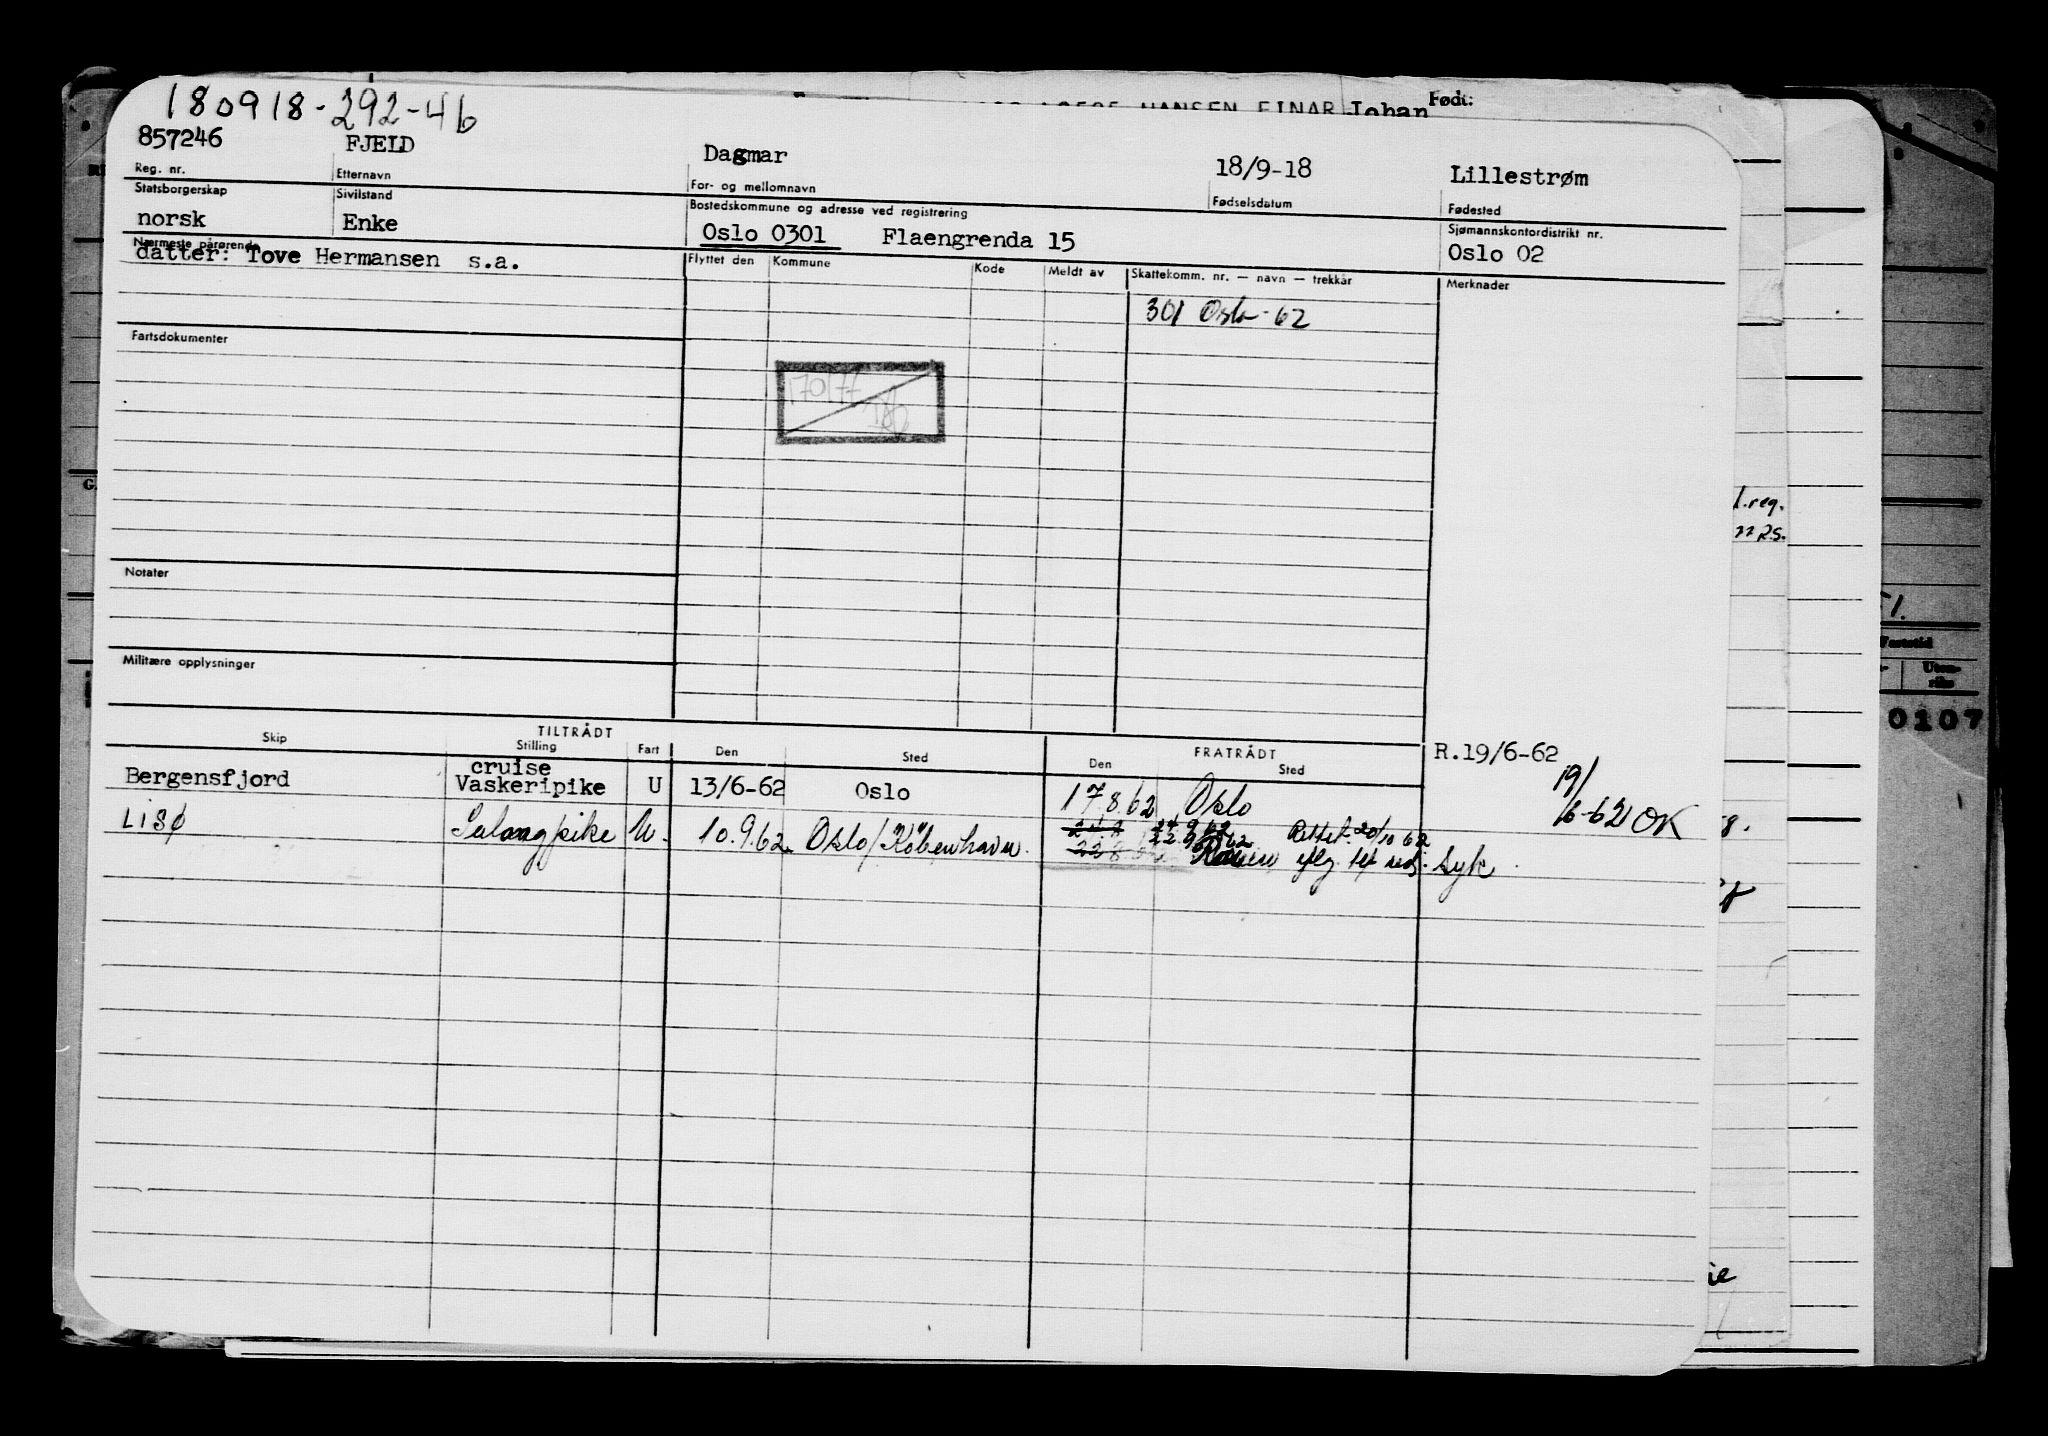 180918-292-46
857246 FJELD Dagmar 18/9-18 Lillestrøm
Reg. nr. Etternavn For- og mellomnavn Fødselsdatum Fødested
Statsborgerskap Sivilstand Bostedskommune og adresse ved registrering Sjømannskontordistrikt nr.
norsk Enke Oslo 0301 Flaengrenda 15 Oslo 02
Nærmeste pårørende
datter: Tove Hermansen s.a.
Flyttet den Kommune Kode Meldt av Skattekomm. nr. — navn — trekkår Merknader
301 Oslo-62
Fartsdokumenter
Notater
Militære opplysninger
TILTRÅDT FRATRÅDT
Skip Stilling Fart Den Sted Den Sted
R.19/6-62
19/
6-62 OK
Bergensfjord cruise Vaskeripike U 13/6-62 Oslo 17 8 62 Oslo
LISØ Salongpike U. 10.9.62 Oslo/København.
22.9.62 Rettet. 20/10 62
syk
HANSEN EINAR Johan
Født:
l.reg.
Fartstid
Uten-
riks
0107